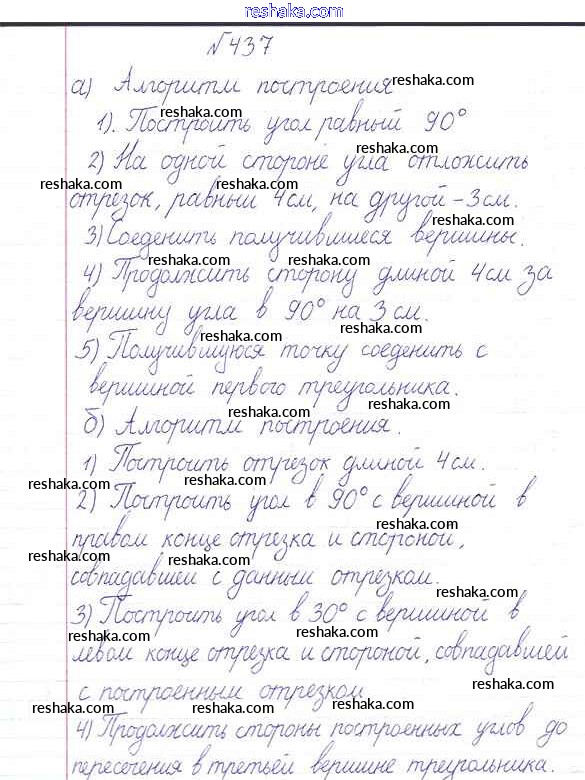 reshaka.com
№437
а) Алгоритм построения reshaka.com
reshaka.com reshaka.com
1). Построить угол равный 90°
2) На одной стороне угла отложить
reshaka.com reshaka.com
отрезок, равный 4см, на другой - 3см.
reshaka.com
3) Соеденить получившиеся вершины.
reshaka.com reshaka.com
4) Продолжить сторону длиной 4см за
вершину угла в 90° на 3см.
reshaka.com
5) Получившуюся точку соеденить с
reshaka.com
вершиной первого треугольника.
reshaka.com
б) Алгоритм построения.
1) Построить отрезок длиной 4см.
reshaka.com reshaka.com
2) Построить угол в 90° с вершиной в
reshaka.com
правом конце отрезка и стороной,
reshaka.com reshaka.com
совпадавшей с данным отрезком.
reshaka.com
3) Построить угол в 30° с вершиной в
reshaka.com reshaka.com
левом конце отрезка и стороной, совпадавшей
с построенным отрезком reshaka.com
reshaka.com reshaka.com
4) Продолжить стороны построенных углов до
reshaka.com reshaka.com
пересечения в третьей вершине треугольника.